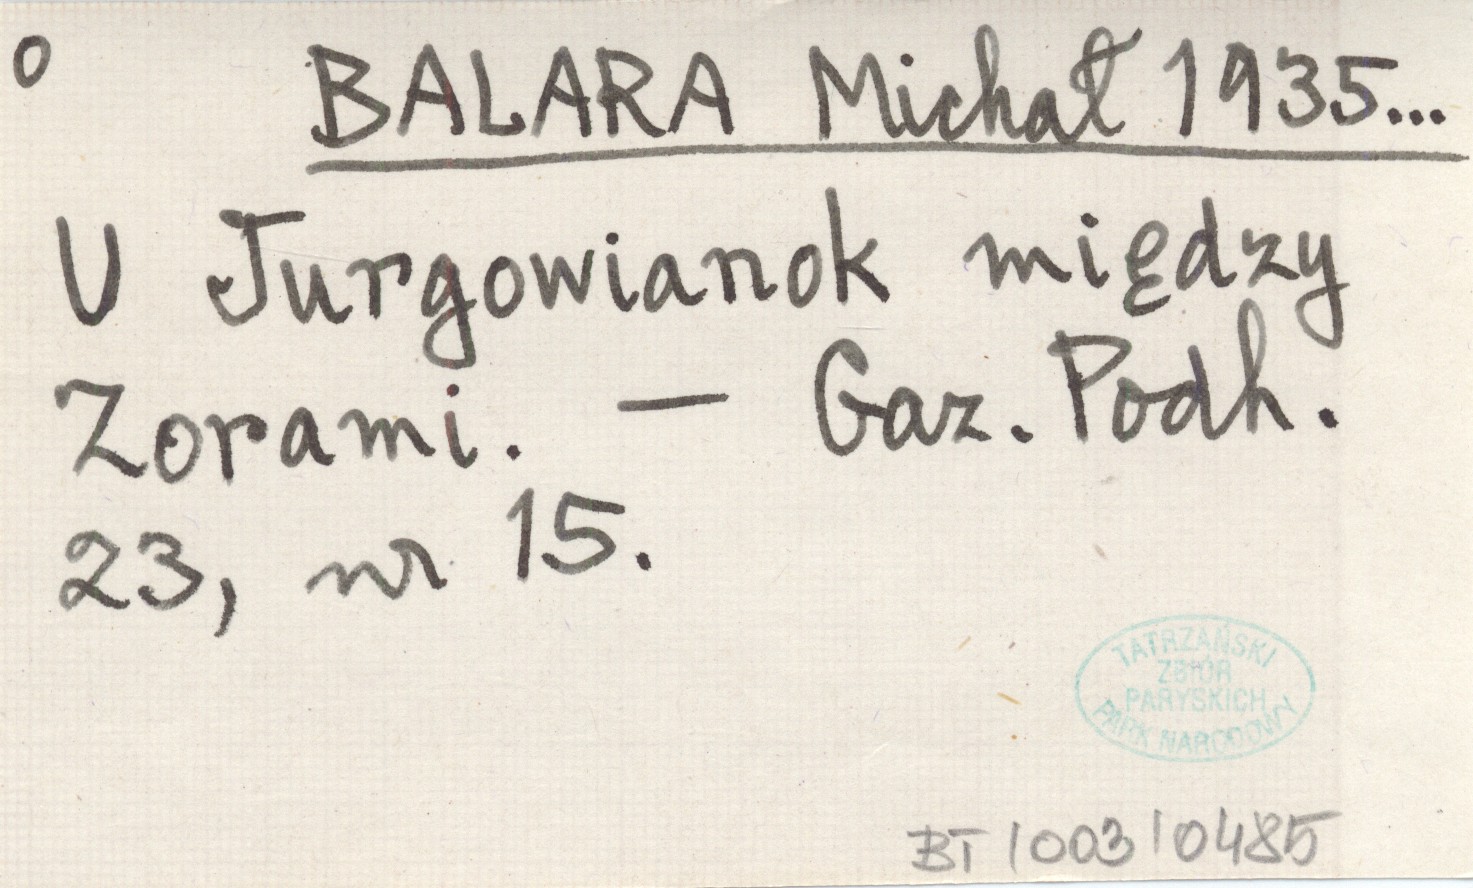 o
BALARA Michał 1935...
U Jurgowianok między
Zorami. — Gaz. Podh.
23, nr 15.
TATRZAŃSKI
ZBIÓR
PARYSKICH
PARK NARODOWY
BT/003/0485